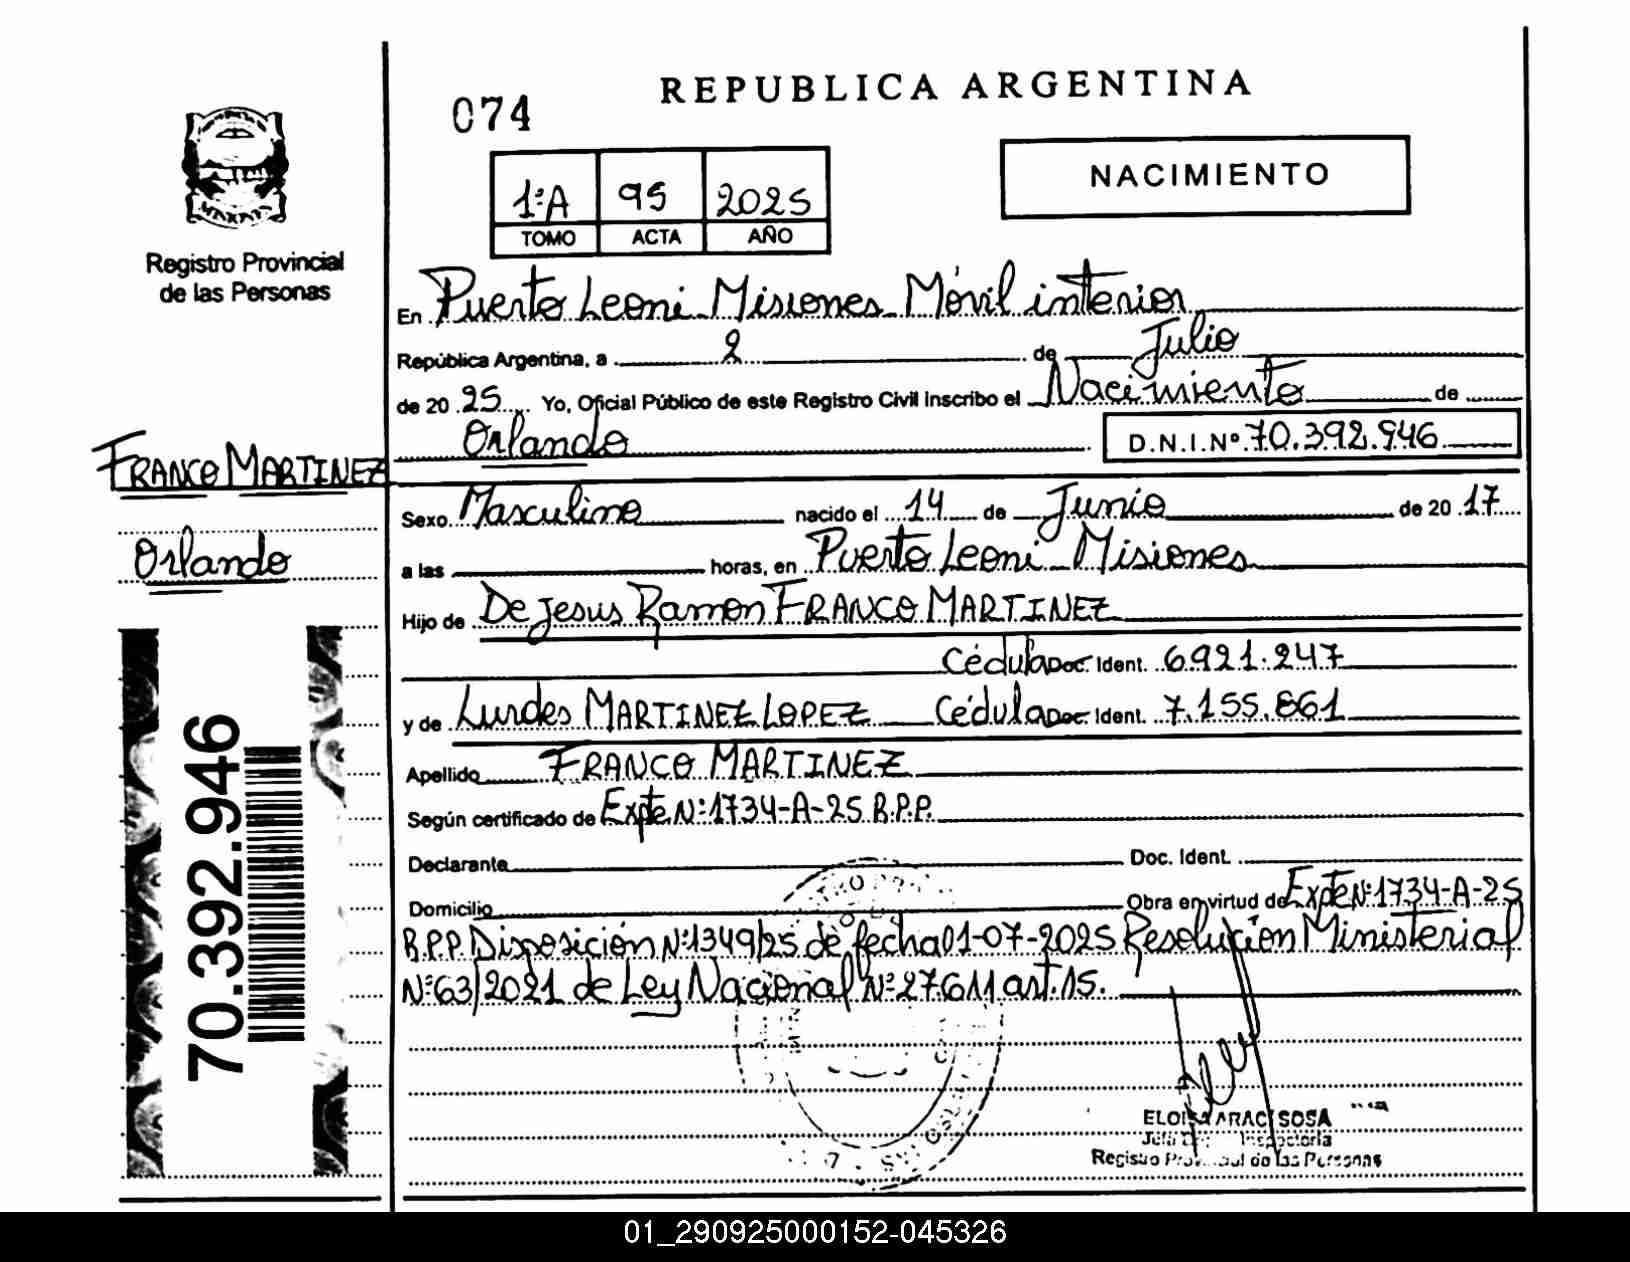 REPUBLICA ARGENTINA
074
NACIMIENTO
1ºA 95 2025
TOMO ACTA AÑO
Registro Provincial
de las Personas
En Puerto Leoni Misiones Móvil interior
República Argentina, a 2 de Julio
de 2025 Yo, Oficial Público de este Registro Civil inscribo el Nacimiento de
Orlando D.N.I.Nº 70.392.946
FRANCO MARTINEZ
Orlando
Sexo Masculino nacido el 14 de Junio de 2017
a las horas, en Puerto Leoni Misiones
Hijo de De Jesus Ramon FRANCO MARTINEZ
Cédula Doc. Ident. 6.921.247
y de Lurdes MARTINEZ LOPEZ Cédula Doc. Ident. 7.155.861
Apellido FRANCO MARTINEZ
Según certificado de Expte Nº 1734-A-25 R.P.P.
Declarante Doc. Ident.
Domicilio Obra en virtud de Expte Nº 1734-A-25
R.P.P. Disposición Nº 1349/25 de fecha 01-07-2025 Resolución Ministerial
Nº 63/2021 de Ley Nacional Nº 27611 art. 15.
70.392.946
ELOISA ARACI SOSA
Registro Provincial de las Personas
01_290925000152-045326